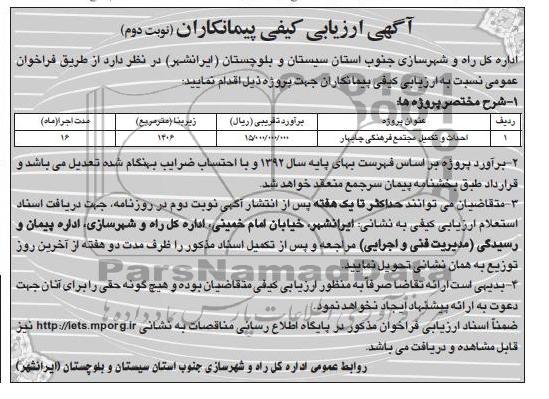 آگهی ارزیابی کیفی پیمانکاران (نوبت دوم)
اداره کل راه و شهرسازی جنوب استان سیستان و بلوچستان (ایرانشهر) در نظر دارد از طریق فراخوان
عمومی نسبت به ارزیابی کیفی پیمانکاران جهت پروژه ذیل اقدام نمایید:
۱-شرح مختصر پروژه ها:
ردیف عنوان پروژه برآورد تقریبی (ریال) زیربنا(مترمربع) مدت اجرا(ماه)
۱ احداث و تکمیل مجتمع فرهنگی چابهار ۱۵/۰۰۰/۰۰۰/۰۰۰ ۱۴۰۶ ۱۶
۲-برآورد پروژه بر اساس فهرست بهای پایه سال ۱۳۹۲ و با احتساب ضرایب بهنگام شده تعدیل می باشد و
قرارداد طبق بخشنامه پیمان سرجمع منعقد خواهد شد.
۳-متقاضیان می توانند حداکثر تا یک هفته پس از انتشار آگهی نوبت دوم در روزنامه، جهت دریافت اسناد
استعلام ارزیابی کیفی به نشانی: ایرانشهر، خیابان امام خمینی، اداره کل راه و شهرسازی، اداره پیمان و
رسیدگی (مدیریت فنی و اجرایی) مراجعه و پس از تکمیل اسناد مذکور را ظرف مدت دو هفته از آخرین روز
توزیع به همان نشانی تحویل نمایید.
۴-بدیهی است ارائه تقاضا صرفاً به منظور ارزیابی کیفی متقاضیان بوده و هیچ گونه حقی را برای آنان جهت
دعوت به ارائه پیشنهاد ایجاد نخواهد نمود.
ضمناً اسناد ارزیابی فراخوان مذکور در پایگاه اطلاع رسانی مناقصات به نشانی http://iets.mporg.ir نیز
قابل مشاهده و دریافت می باشد.
روابط عمومی اداره کل راه و شهرسازی جنوب استان سیستان و بلوچستان (ایرانشهر)
ParsNamadData